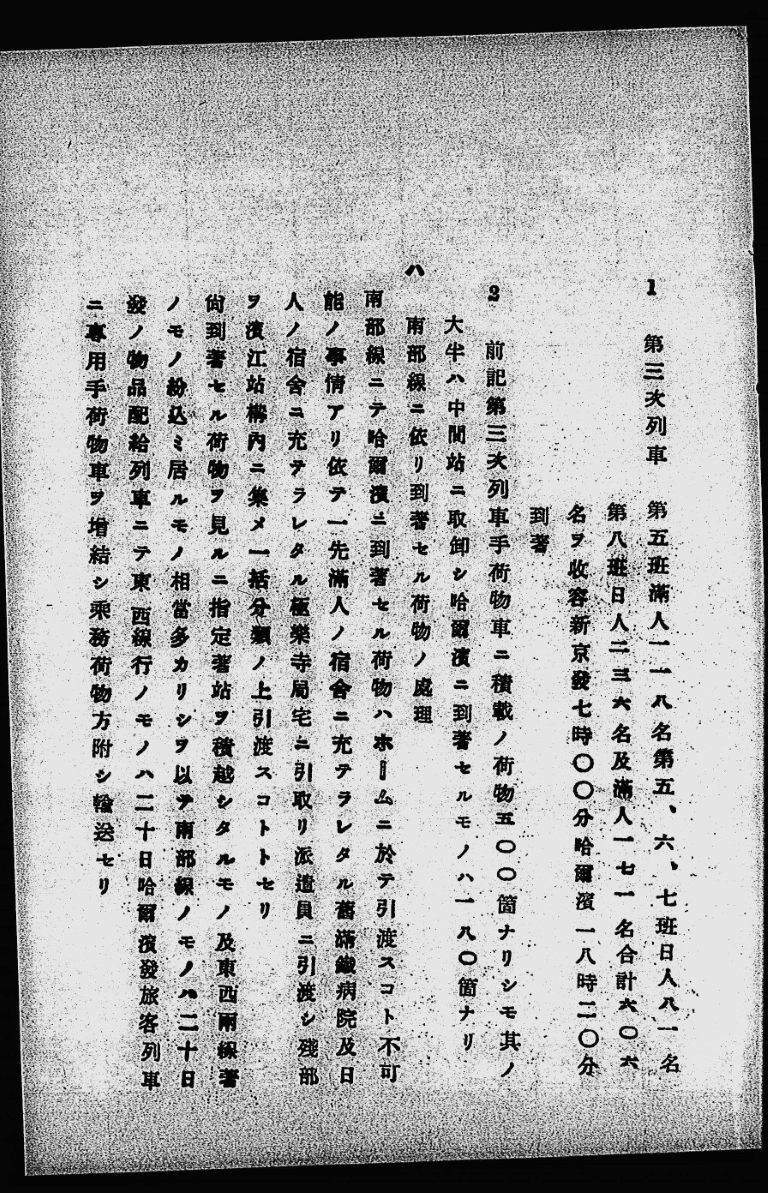 1 第三次列車 第五班滿人一一八名第五、六、七班日人八一名
第八班日人二三六名及滿人一七一名合計六〇六
名ヲ收容新京發七時〇〇分哈爾濱一八時二〇分
到著
2 前記第三次列車手荷物車ニ積載ノ荷物五〇〇箇ナリシモ其ノ
大半ハ中間站ニ取卸シ哈爾濱ニ到著セルモノハ一八〇箇ナリ
ハ 南部線ニ依リ到著セル荷物ノ處理
南部線ニテ哈爾濱ニ到著セル荷物ハホームニ於テ引渡スコト不可
能ノ事情アリ依テ一先滿人ノ宿舍ニ充テラレタル舊滿鐵病院及日
人ノ宿舍ニ充テラレタル極樂寺局宅ニ引取リ派遣員ニ引渡シ殘部
ヲ濱江站構內ニ集メ一括分類ノ上引渡スコトトセリ
尙到著セル荷物ヲ見ルニ指定著站ヲ積越シタルモノ及東西兩線著
ノモノ紛込ミ居ルモノ相當多カリシヲ以テ南部線ノモノハ二十日
發ノ物品配給列車ニテ東西線行ノモノハ二十日哈爾濱發旅客列車
ニ專用手荷物車ヲ增結シ乘務荷物方附シ輸送セリ